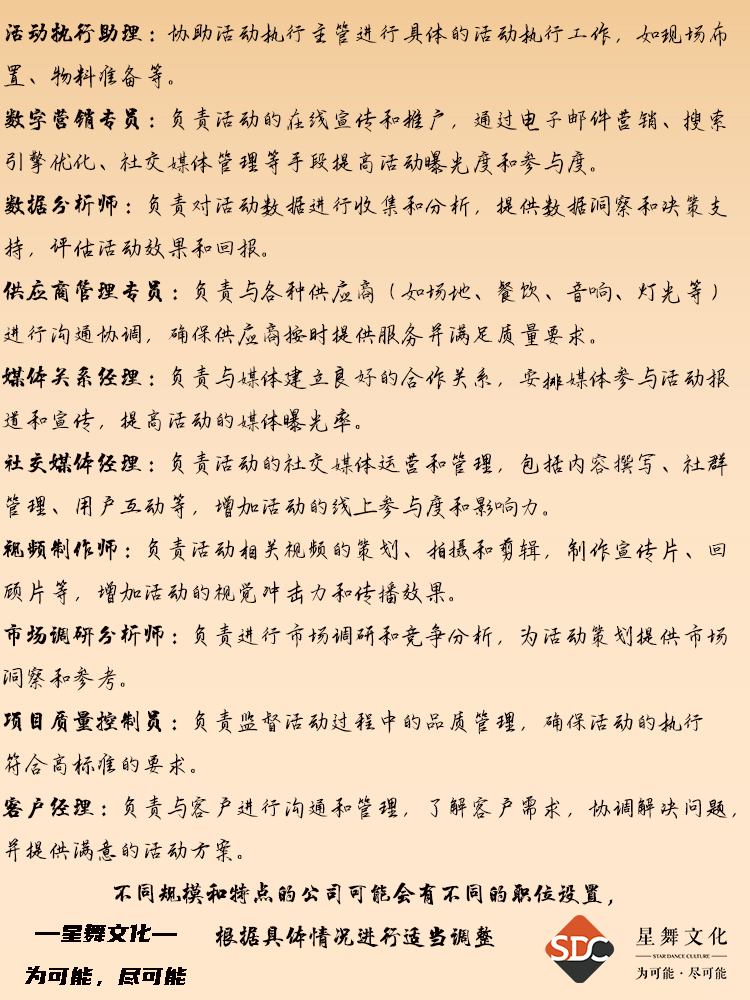 活动执行助理：协助活动执行主管进行具体的活动执行工作，如现场布
置、物料准备等。
数字营销专员：负责活动的在线宣传和推广，通过电子邮件营销、搜索
引擎优化、社交媒体管理等手段提高活动曝光度和参与度。
数据分析师：负责对活动数据进行收集和分析，提供数据洞察和决策支
持，评估活动效果和回报。
供应商管理专员：负责与各种供应商（如场地、餐饮、音响、灯光等）
进行沟通协调，确保供应商按时提供服务并满足质量要求。
媒体关系经理：负责与媒体建立良好的合作关系，安排媒体参与活动报
道和宣传，提高活动的媒体曝光率。
社交媒体经理：负责活动的社交媒体运营和管理，包括内容撰写、社群
管理、用户互动等，增加活动的线上参与度和影响力。
视频制作师：负责活动相关视频的策划、拍摄和剪辑，制作宣传片、回
顾片等，增加活动的视觉冲击力和传播效果。
市场调研分析师：负责进行市场调研和竞争分析，为活动策划提供市场
洞察和参考。
项目质量控制员：负责监督活动过程中的品质管理，确保活动的执行
符合高标准的要求。
客户经理：负责与客户进行沟通和管理，了解客户需求，协调解决问题，
并提供满意的活动方案。
不同规模和特点的公司可能会有不同的职位设置，
根据具体情况进行适当调整
—星舞文化—
为可能，尽可能
SDC
星舞文化
STAR DANCE CULTURE
为可能·尽可能